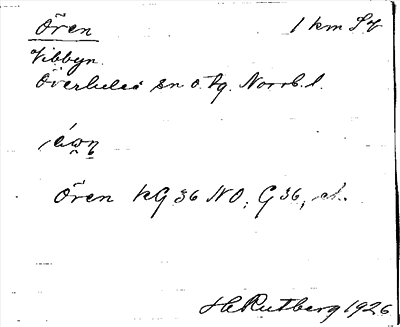 Ören 1 km SV
Vibbyn.
Överluleå sn o. tg. Norrb. l.
Ören KG 36 NO; G 36,
H Rutberg 1926